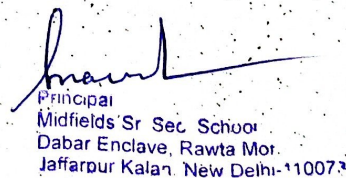 Principal
Midfields Sr Sec School
Dabar Enclave, Rawta Mor.
Jaffarpur Kalan New Delhi-110073